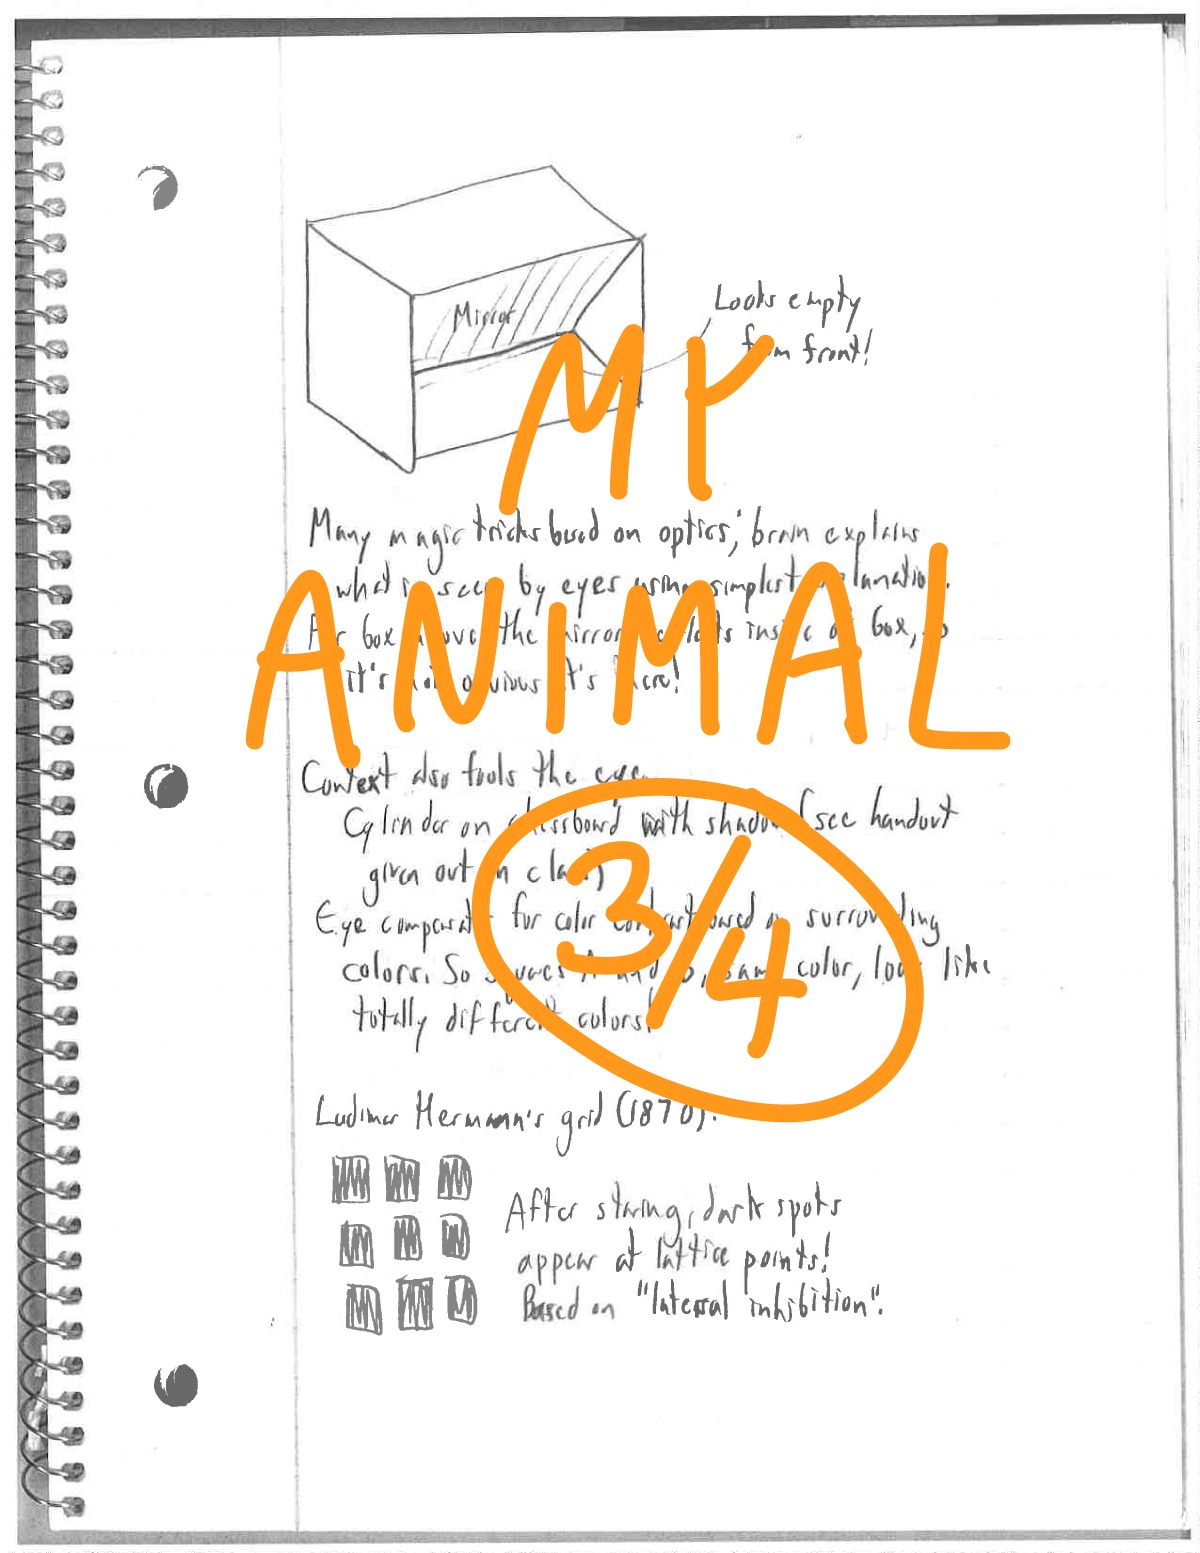 Mirror
Looks empty
from front!
MY
Many magic tricks based on optics; brain explains
what is seen by eyes using simplest explanation.
ANIMAL
For box above the mirror inside of box, so
it's not obvious it's there!
Context also fools the eye.
Cylinder on chessboard with shadow (see handout
given out in class)
3/4
Eye compensates for color contrast based on surrounding
colors. So squares A and B, same color, look like
totally different colors!
Ludimar Hermann's grid (1870).
After staring, dark spots
appear at lattice points!
Based on "lateral inhibition".